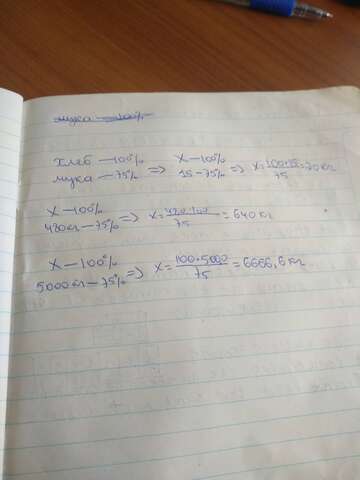 хлеб — 100%
мука — 75% => x — 100%
15 — 75% => x = 100·15/75 = 20 кг
x — 100%
480 кг — 75% => x = 480·100/75 = 640 кг
x — 100%
5000 кг — 75% => x = 100·5000/75 = 6666,6 кг